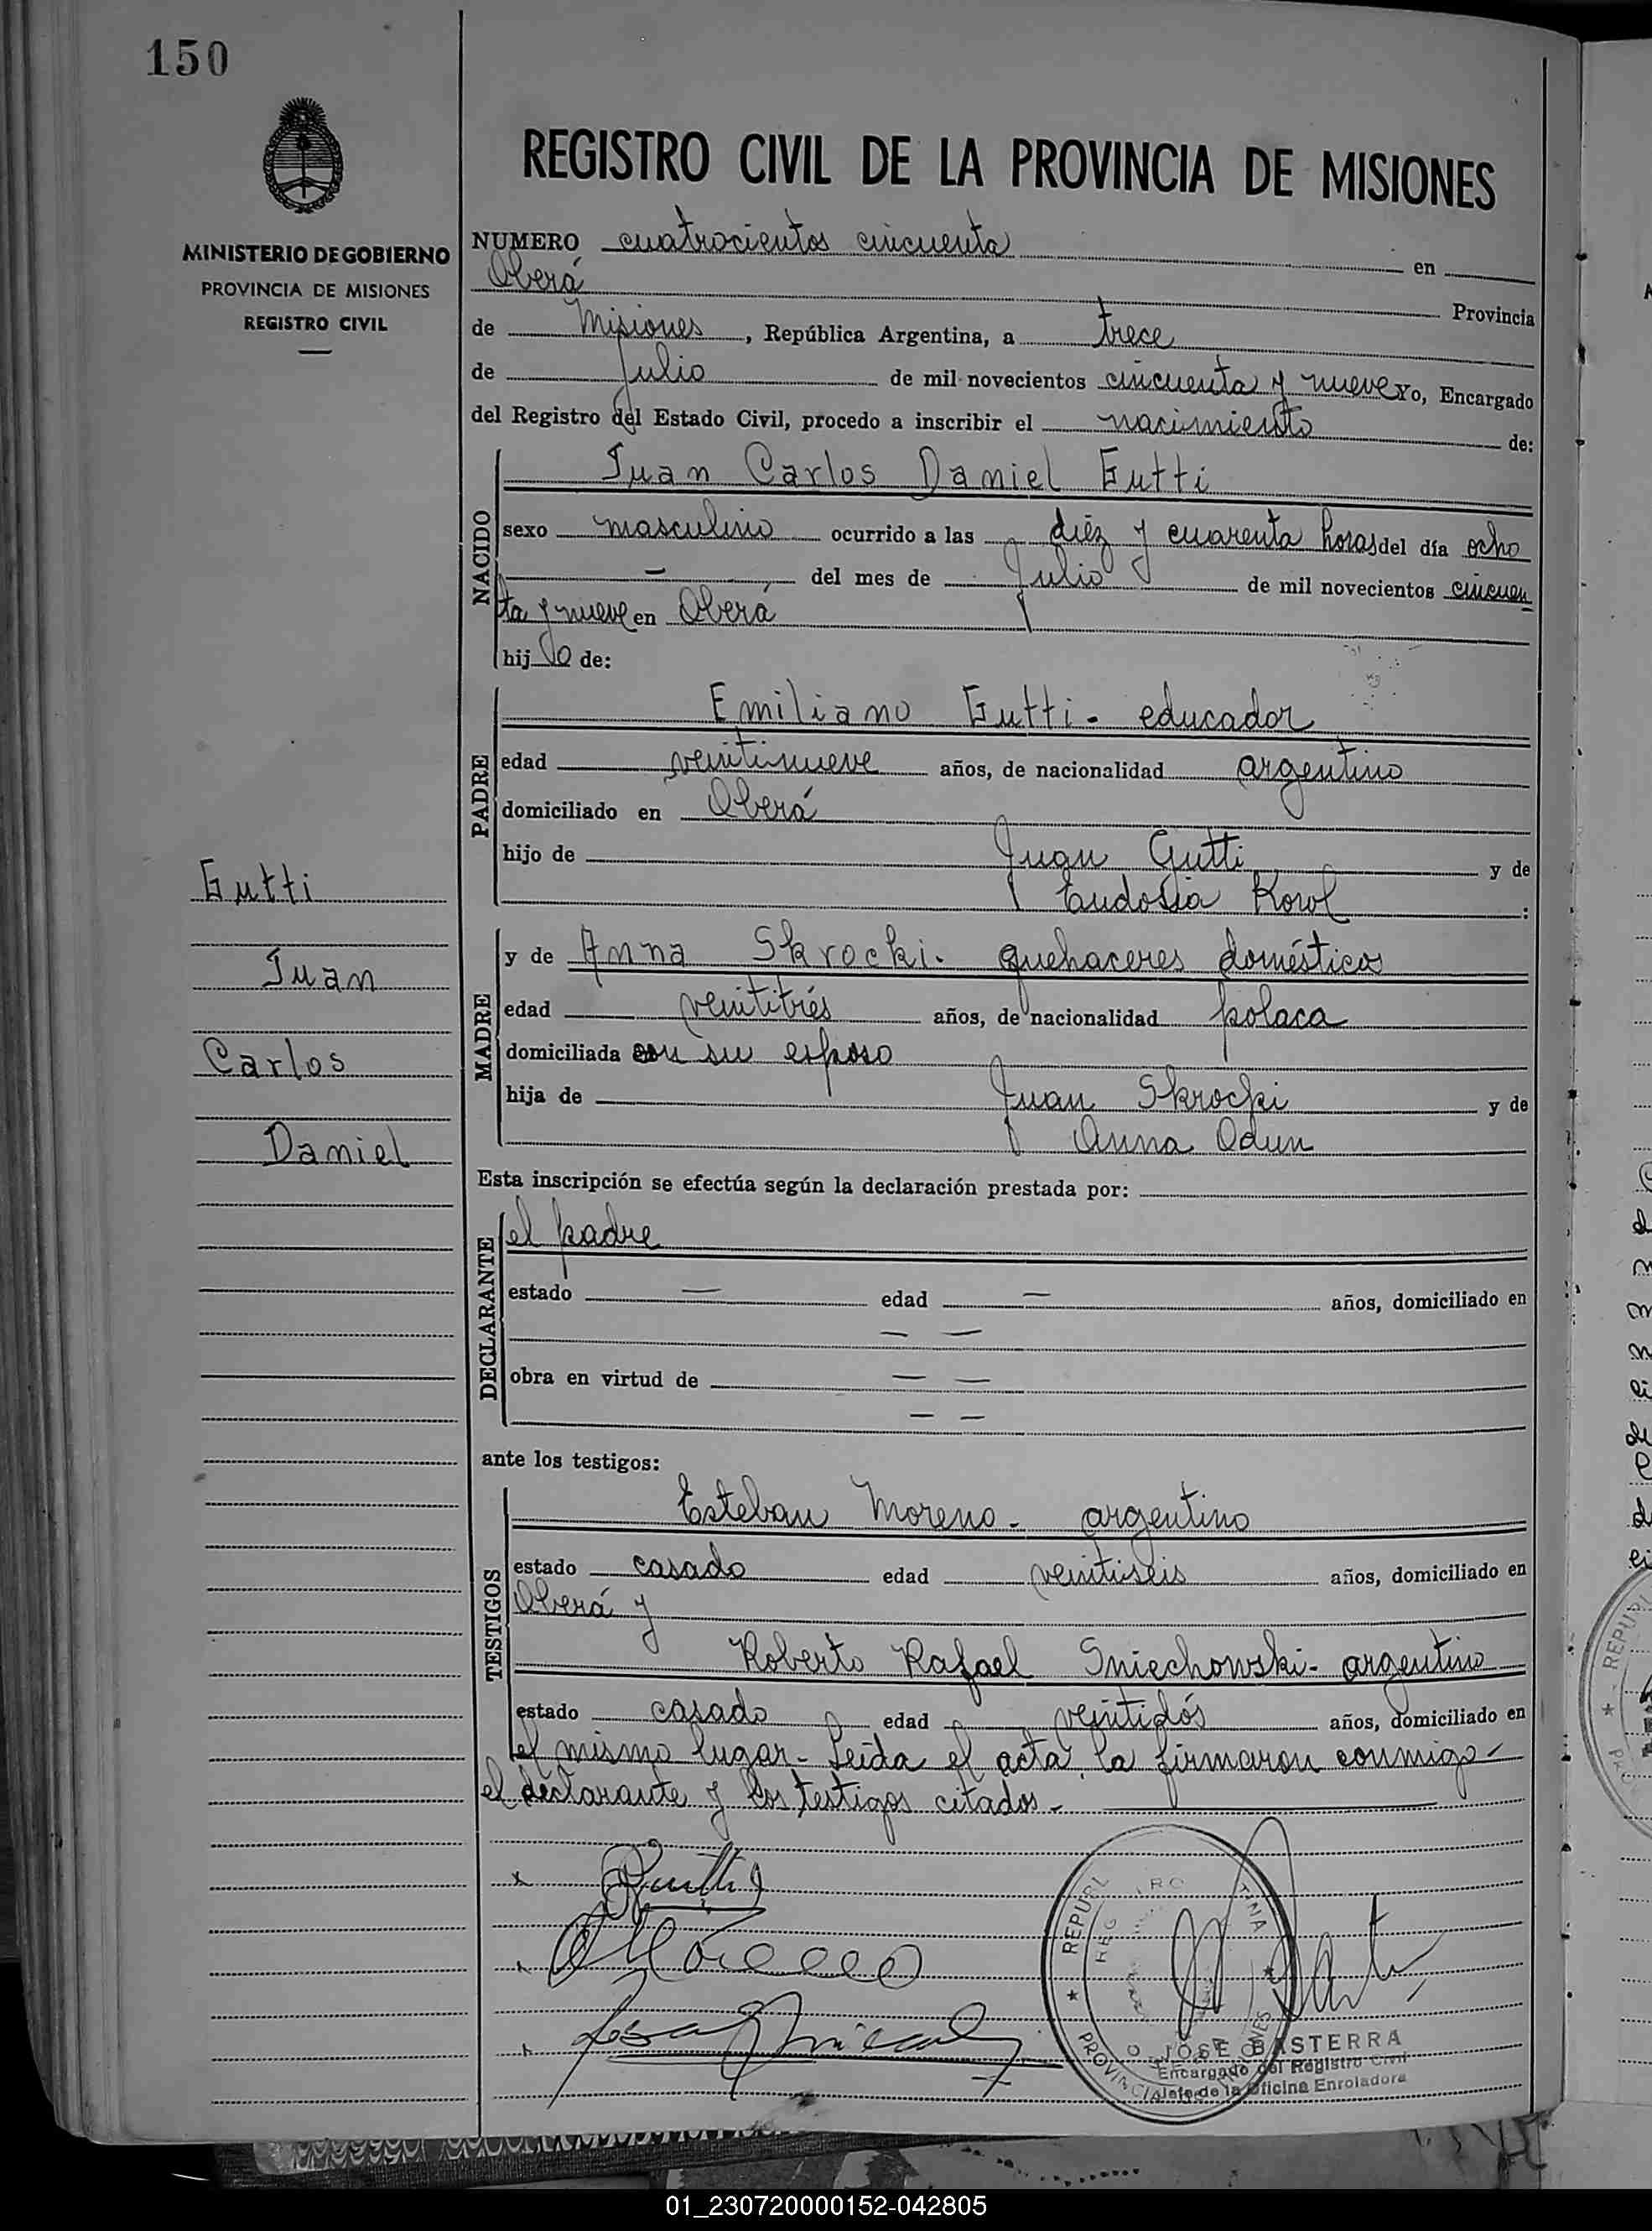 150
MINISTERIO DE GOBIERNO
PROVINCIA DE MISIONES
REGISTRO CIVIL
REGISTRO CIVIL DE LA PROVINCIA DE MISIONES
NUMERO cuatrocientos cincuenta en
Oberá Provincia
de Misiones, República Argentina, a trece
de Julio de mil novecientos cincuenta y nueve Yo, Encargado
del Registro del Estado Civil, procedo a inscribir el nacimiento de:
NACIDO
Juan Carlos Daniel Gutti
sexo masculino ocurrido a las diéz y cuarenta horas del día ocho
— del mes de Julio de mil novecientos cincuen
ta y nueve en Oberá
hijo de:
PADRE
Emiliano Gutti - educador
edad veintinueve años, de nacionalidad argentino
domiciliado en Oberá
hijo de Juan Gutti y de
Eudosia Korol :
MADRE
y de Anna Skrocki - quehaceres domésticos
edad veintitrés años, de nacionalidad polaca
domiciliada con su esposo
hija de Juan Skrocki y de
Anna Odun
Esta inscripción se efectúa según la declaración prestada por:
DECLARANTE
el padre
estado — edad — años, domiciliado en
— —
obra en virtud de — —
— —
ante los testigos:
TESTIGOS
Esteban Moreno - argentino
estado casado edad veintiseis años, domiciliado en
Oberá y
Roberto Rafael Sniechowski - argentino
estado casado edad veintidós años, domiciliado en
el mismo lugar - Leída el acta, la firmaron conmigo
el declarante y los testigos citados -
Gutti
Juan
Carlos
Daniel
JOSE BASTERRA
Encargado del Registro Civil
Jefe de la Oficina Enroladora
01_230720000152-042805